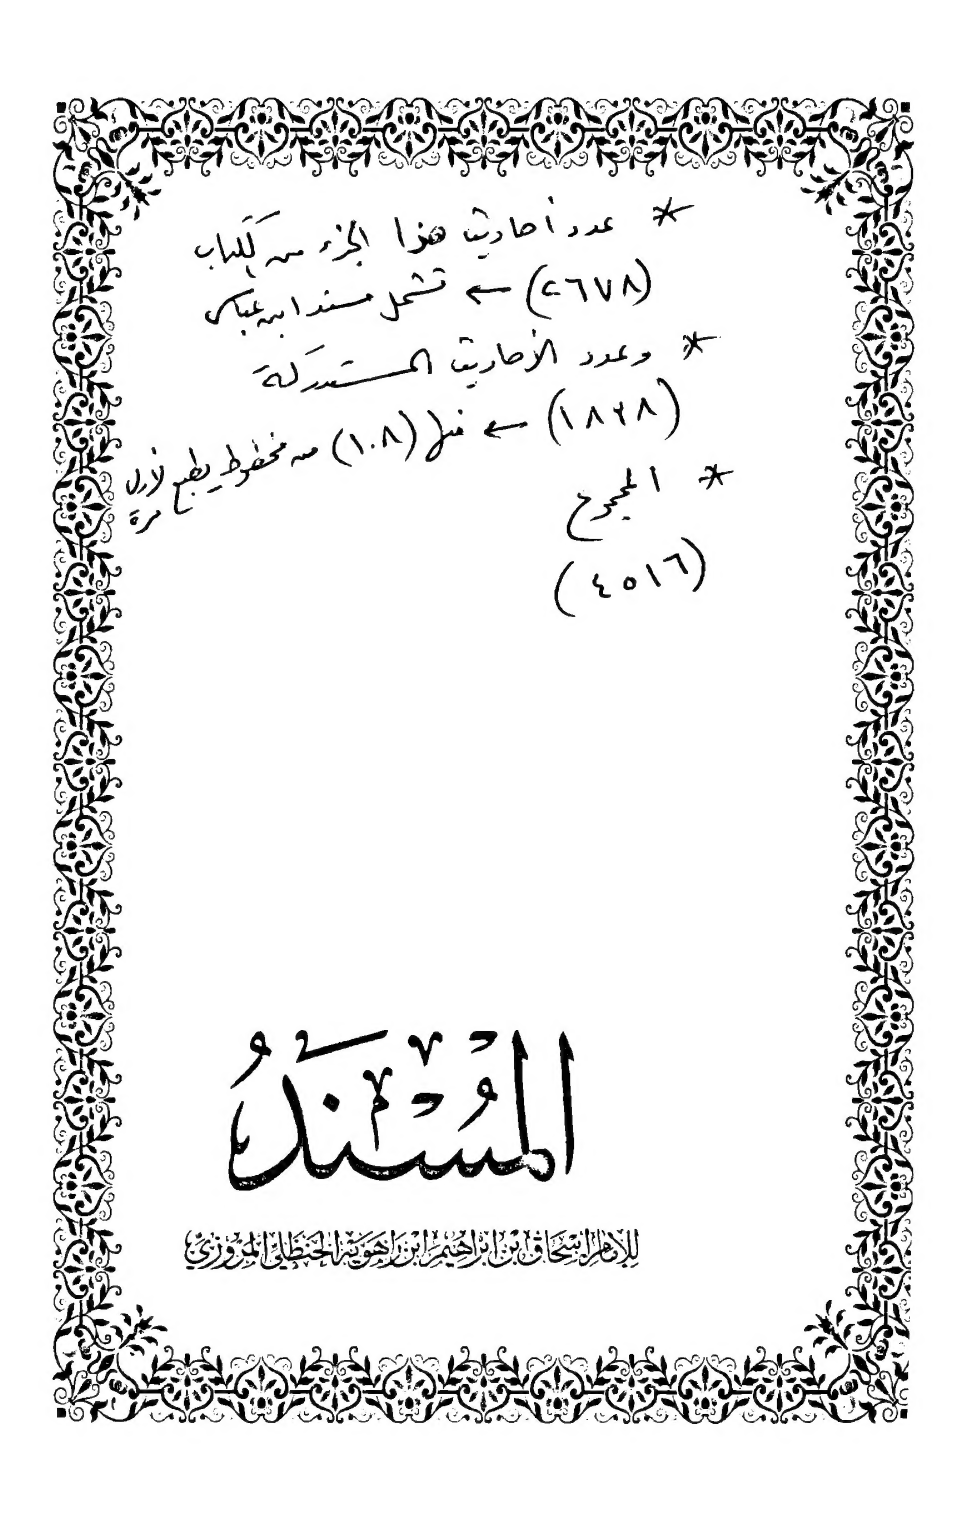 * عدد أحاديث هذا الجزء من الكتاب
(٢٦٧٨) ← تشمل مسند ابن عباس
* وعدد الأحاديث المستدركة
(١٨٣٨) ← منها (١٠٨) من مخطوط يطبع لأول مرة
* المجموع
(٤٥١٦)
المُسْنَدُ
للإمام إسحاق بن إبراهيم ابن راهويه الحنظلي المروزي